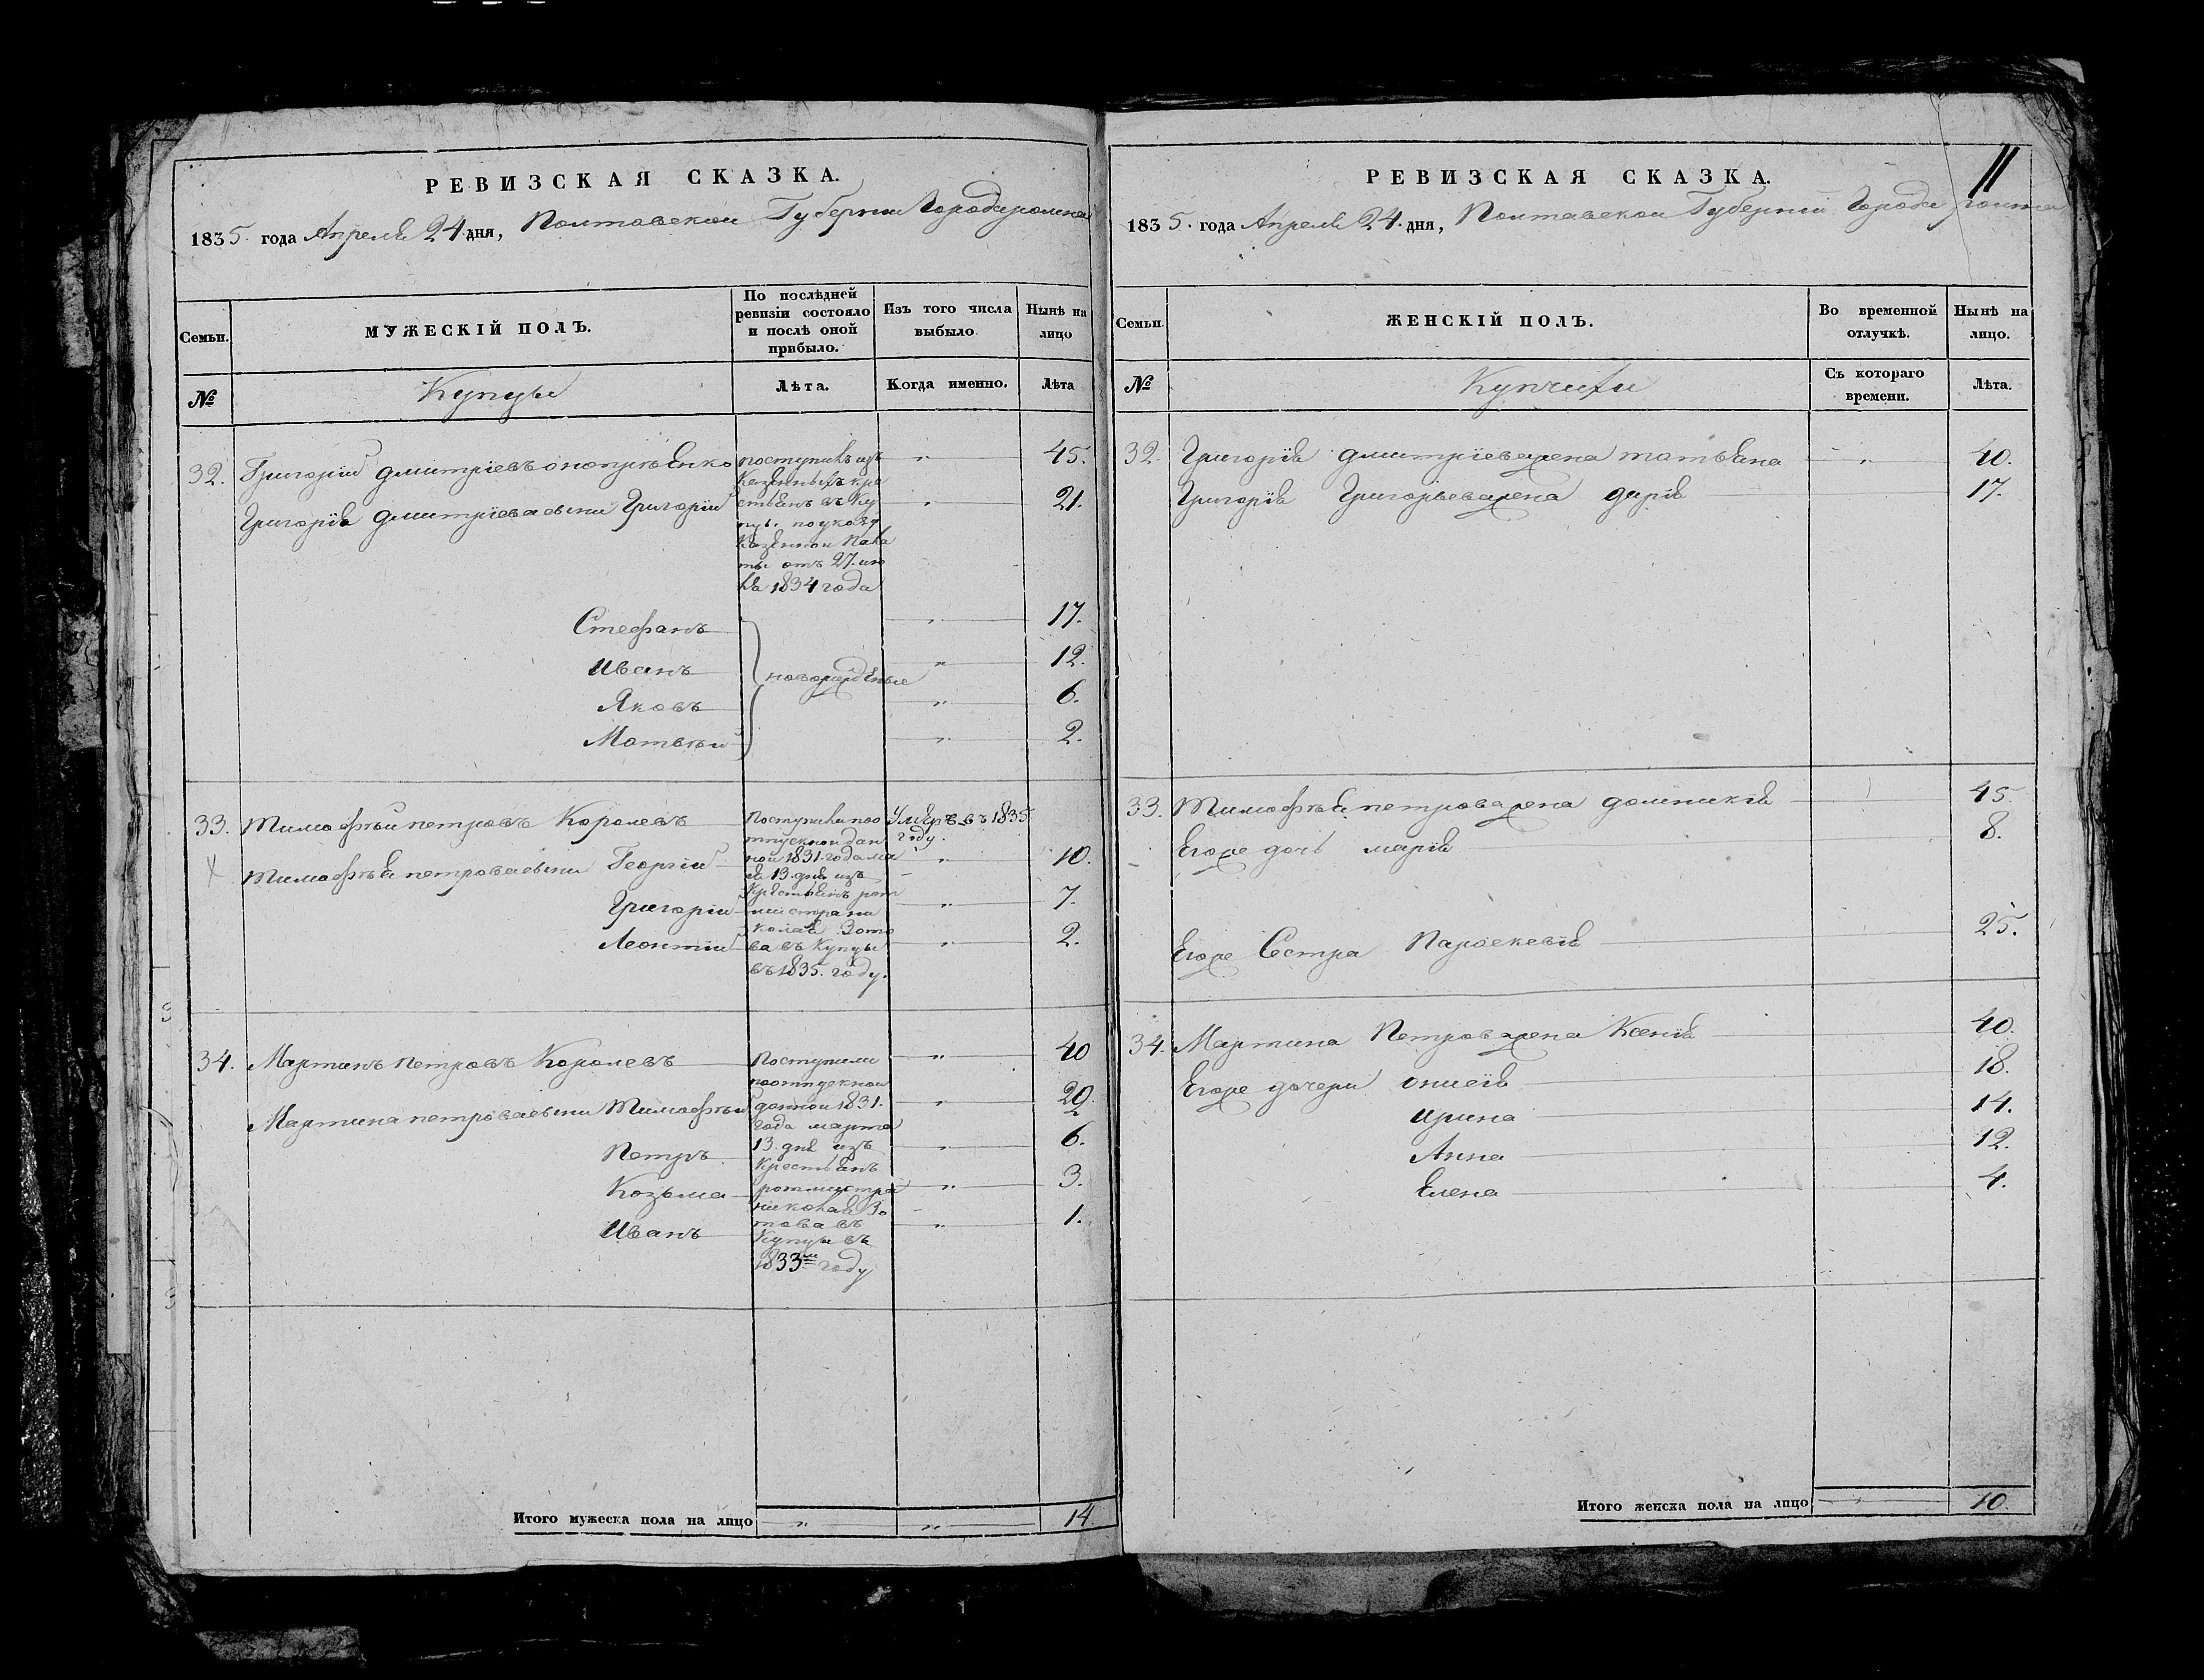 РЕВИЗСКАЯ СКАЗКА.
1835. года Апреля 24 дня, Полтавской Губернии Города ромна
Семьи.
МУЖЕСКІЙ ПОЛЪ.
По послѣдней ревизіи состояло и послѣ оной прибыло.
Изъ того числа выбыло
Нынѣ на лицо
№
Купцы
Лѣта.
Когда именно.
Лѣта
32. Григорій дмитріевъ
поступилъ изъ
казенныхъ кре
стьянъ въ Куп
цы. по указу
Казенной Пала
ты отъ 27. ию
ля 1834 года
„ 45.
Григорія дмитріева сыни Григорій „ 21.
Стефанъ „ 17.
Иванъ новорожденые „ 12.
Яковъ „ 6.
Матвѣй „ 2.
33. Тимофѣй петровъ Королевъ
Поступили по о
тпускной дан
ной 1831. года ма
я 13. дня изъ
Крестьянъ рот
мистра ни
колая Зото
ва въ Купцы
въ 1835. году.
Умеръ въ 1835
году.
Тимофѣя петрова сыни Георгій „ 10.
Григорій „ 7.
Леонтій „ 2.
34. Мартинъ Петровъ Королевъ
Поступили
по отпускной
данной 1831.
года марта
13. дня изъ
Крестьянъ
ротмистра
николая Зо
това въ
Купцы въ
1833м году
„ 40
Мартина петрова сыни Тимофѣй „ 20.
Петръ „ 6.
Козьма „ 3.
Иванъ „ 1.
Итого мужеска пола на лицо „ „ 14.
11
РЕВИЗСКАЯ СКАЗКА.
1835. года Апреля 24. дня, Полтавской Губерніи Города ромна
Семьи.
ЖЕНСКІЙ ПОЛЪ.
Во временной отлучкѣ.
Нынѣ на лицо.
№
Купчихи
Съ котораго времени.
Лѣта.
32. Григорія дмитріева жена татьяна „ 40.
Григорія Григорьева жена дарія 17.
33. Тимофѣя петрова жена домникія 45.
Егоже дочь марія 8.
Егоже Сестра Параскевія 25.
34. Мартина Петрова жена Ксенія 40.
Егоже дочери 18.
ирина 14.
Анна 12.
Елена 4.
Итого женска пола на лицо 10.